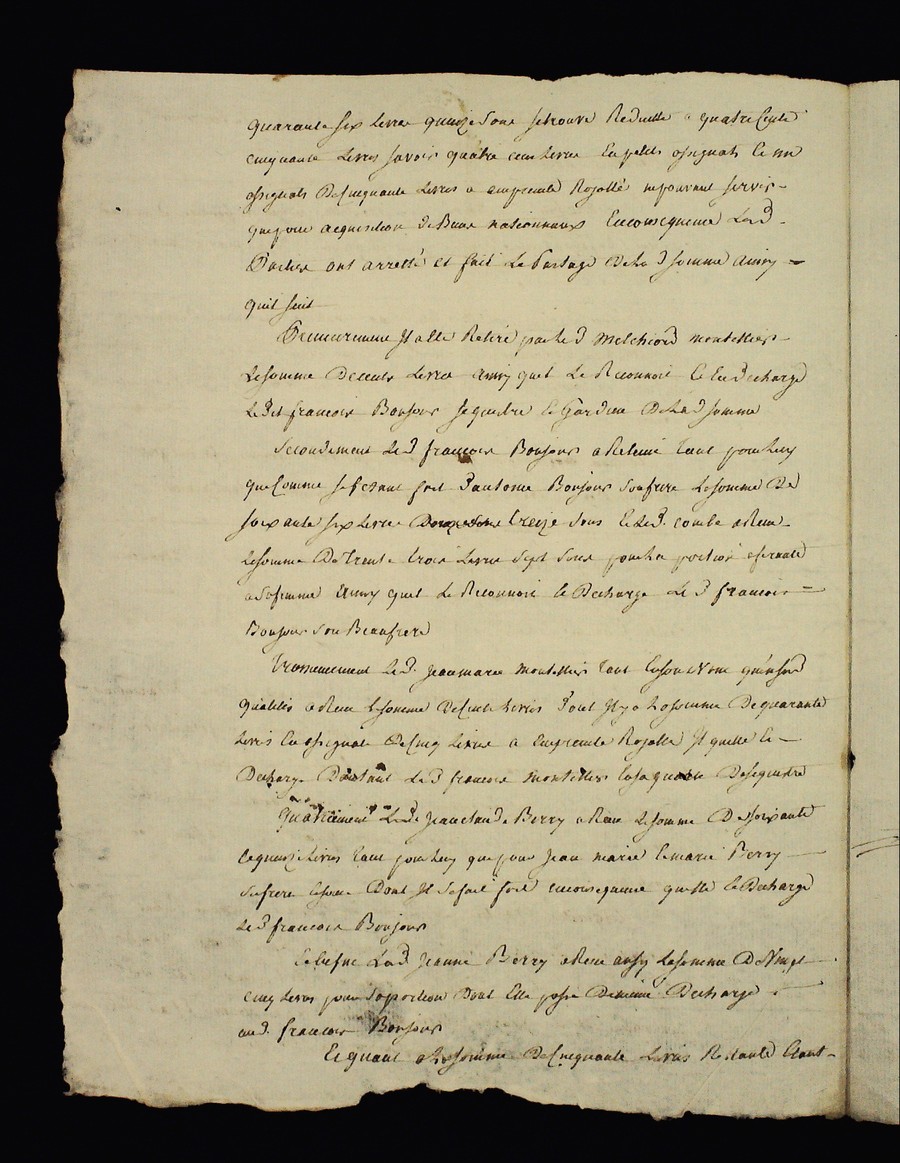 quarante six livres quinze sous se trouve Reduitte a quatre Cents
cinquante Livres savoir quatre cens livres En petits assignats Et un
assignats De Cinquante Livres a empreinte Royalle ne pouvant servir
que pour acquisition de Biens nationnaux En consequence Lesd.
Parties ont arretté et fait Le Partage De la d somme ainsy
quil suit
Premierement Il a été Retiré par led Melchiord montellier
La somme De cents Livres ainsy quil Le Reconnoit Et En Decharge
Led francois Bonjour sequestre Et Gardien De lad somme
Secondement Led francois Bonjour a Retenu tant pour Luy
que Comme se fesant fort d'antoine Bonjour son frere La somme De
soixante six Livres treize sous Et Led. combe a Reçu
La somme De trente trois Livres sept sous pour La portion afferante
a sa femme ainsy quil Le Reconnoit Et Decharge Led francois
Bonjour son Beaufrere
Troisiemement Led. jean marie montellier tant En son Nom qu'en sad
qualité a Reçu La somme De Cents Livres dont Il y a La somme De quarante
Livres En assignats De Cinq Livres a Empreinte Royalle Il quitte Et
Decharge Dautant Led francois De sequestre
Quatriement Led Jean claude Berry a Reçu La somme De soixante
Et quinze Livres tant pour Luy que pour Jean marie Et marie Berry
Ses frere Et sœur Dont Il se fait fort En consequence quitte Et Decharge
Led francois Bonjour
Et Enfin Lad Jeanne Berry a Reçu aussy La somme De Vingt
cinq Livres pour sa portion Dont Elle passe De même Decharge
aud. francois Bonjour
Et quant a La somme De Cinquante Livres Restante Etant